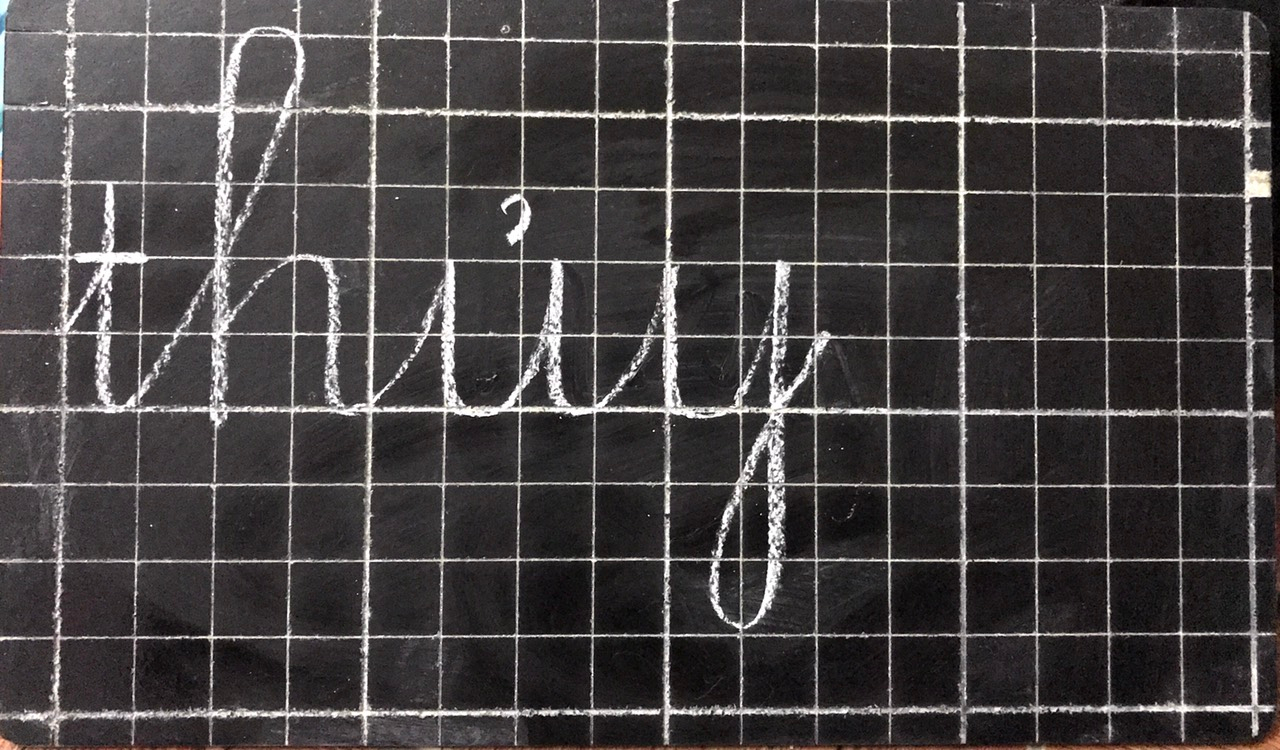 thủy